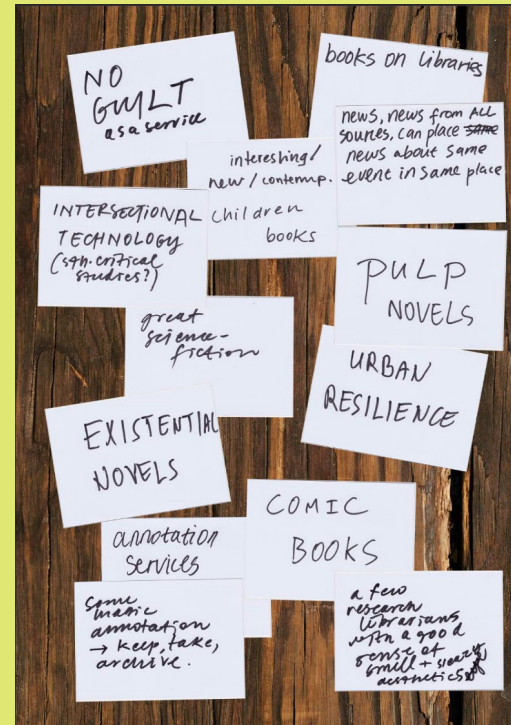 NO
GUILT
as a service
books on libraries
news, news from ALL
sources, can place same
news about same
event in same place
interesting/
new / contemp.
children
books
INTERSECTIONAL
TECHNOLOGY
(sth. critical
studies?)
PULP
NOVELS
great
science-
fiction
URBAN
RESILIENCE
EXISTENTIAL
NOVELS
COMIC
BOOKS
annotation
services
some
magic
annotation
→ keep, take,
archive.
a few
research
librarians
with a good
sense of
smell +
aesthetics